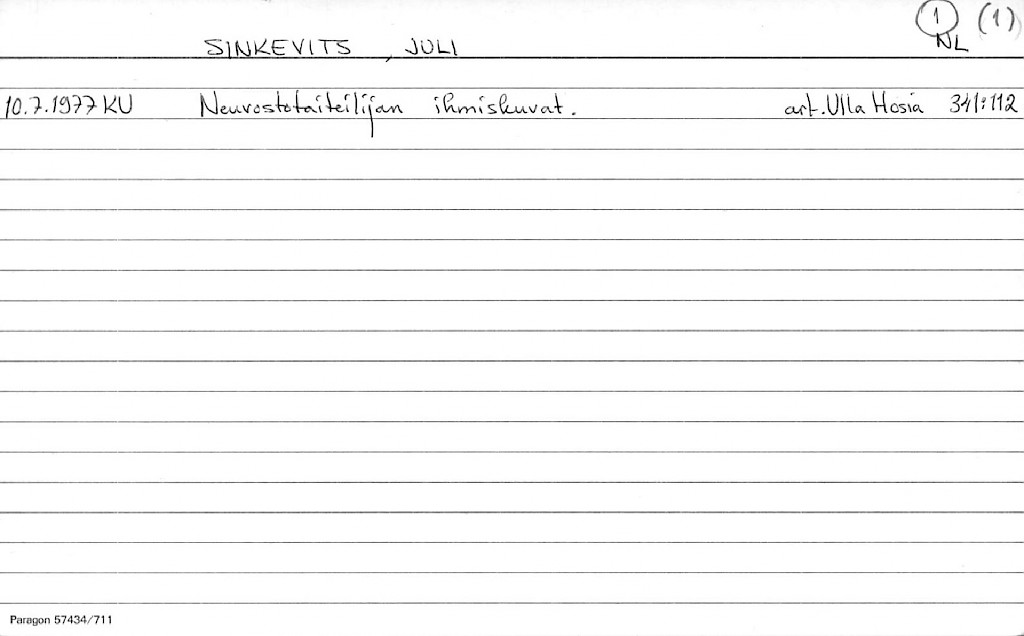 1 (1)
SINKEVITS, JULI NL
10.7.1977 KU Neuvostotaiteilijan ihmiskuvat. art. Ulla Hosia 341:112
Paragon 57434/711